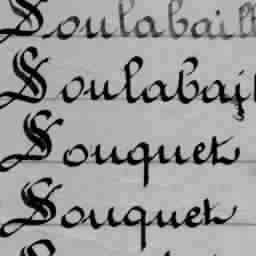 Soulabaill
Soulabail
Souquet
Souquet